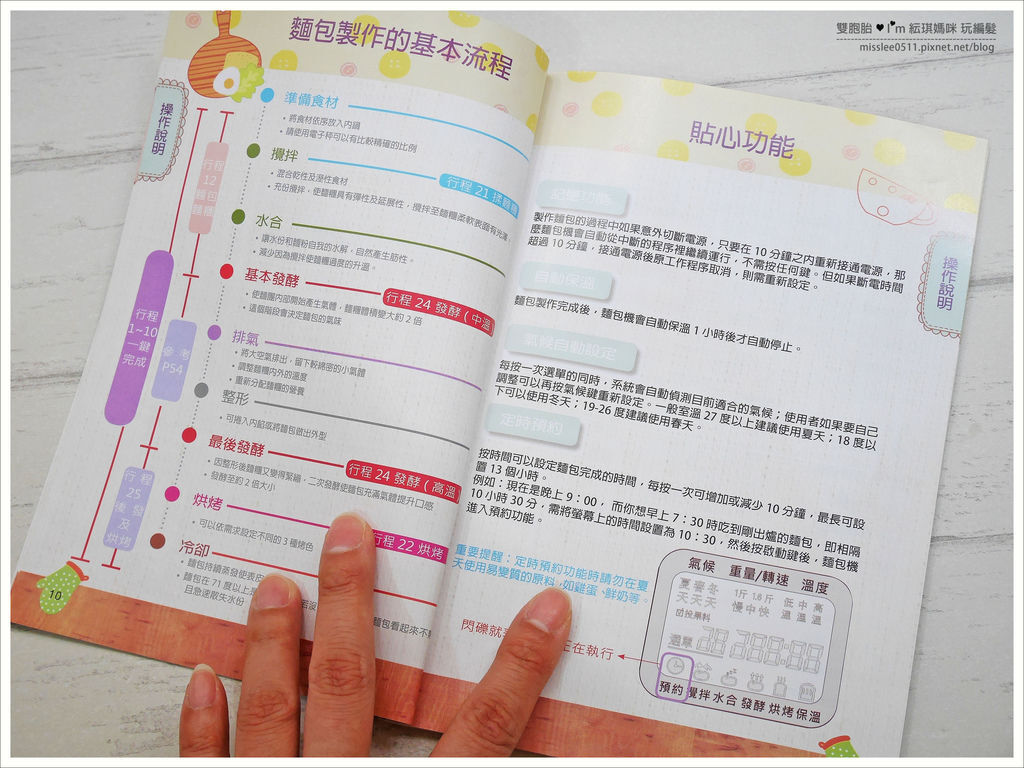 雙胞胎♥I'm 紜琪媽咪 玩編髮
misslee0511.pixnet.net/blog
麵包製作的基本流程
操作說明
準備食材
• 將食材依序放入內鍋
• 請使用電子秤可以有比較精確的比例
攪拌
行程 21 揉麵糰
• 混合乾性及溼性食材
• 充份攪拌，使麵糰具有彈性及延展性，攪拌至麵糰柔軟表面有光澤
水合
• 讓水份和麵粉自我的水解，自然產生筋性。
• 減少因為攪拌使麵糰過度的升溫。
基本發酵
行程 24 發酵（中溫
• 使麵團內部開始產生氣體，麵糰體積變大約 2 倍
• 這個階段會決定麵包的氣味
排氣
• 將大空氣排出，留下較綿密的小氣體
• 調整麵糰內外的溫度
• 重新分配麵糰的營養
整形
• 可捲入內餡或將麵包做出外型
最後發酵
行程 24 發酵（高溫）
• 因整形後麵糰又變得緊繃，二次發酵使麵包充滿氣體提升口感
• 發酵至約 2 倍大小
烘烤
行程 22 烘烤
• 可以依需求設定不同的 3 種烤色
冷卻
• 麵包持續蒸發使表皮
• 麵包在 71 度以上
且急速散失水份
麵包看起來不
行程
12
麵包
麵糰
行程
1~10
一鍵
完成
參考
P54
行程
25 發
酵及
烘烤
10
貼心功能
操作說明
記憶功能
製作麵包的過程中如果意外切斷電源，只要在 10 分鐘之內重新接通電源，那
麼麵包機會自動從中斷的程序裡繼續運行，不需按任何鍵。但如果斷電時間
超過 10 分鐘，接通電源後原工作程序取消，則需重新設定。
自動保溫
麵包製作完成後，麵包機會自動保溫 1 小時後才自動停止。
氣候自動設定
每按一次選單的同時，系統會自動偵測目前適合的氣候；使用者如果要自己
調整可以再按氣候鍵重新設定。一般室溫 27 度以上建議使用夏天；18 度以
下可以使用冬天；19-26 度建議使用春天。
定時預約
按時間可以設定麵包完成的時間，每按一次可增加或減少 10 分鐘，最長可設
置 13 個小時。
例如：現在是晚上 9：00， 而你想早上 7：30 時吃到剛出爐的麵包，即相隔
10 小時 30 分，需將螢幕上的時間設置為 10：30，然後按啟動鍵後，麵包機
進入預約功能。
重要提醒：定時預約功能時請勿在夏
天使用易變質的原料，如雞蛋、鮮奶等。
閃礫就
在執行
氣候 重量/轉速 溫度
夏春冬 1斤 1.6斤 低中高
天天天 慢中快 溫溫溫
投果料
選單 28 288:88
預約 攪拌 水合 發酵 烘烤 保溫